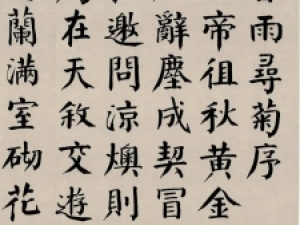 雨尋菊序
帝徂秋黃金
辭塵成契冒
邀問涼燠則
在天敘交遊
蘭滿室砌花